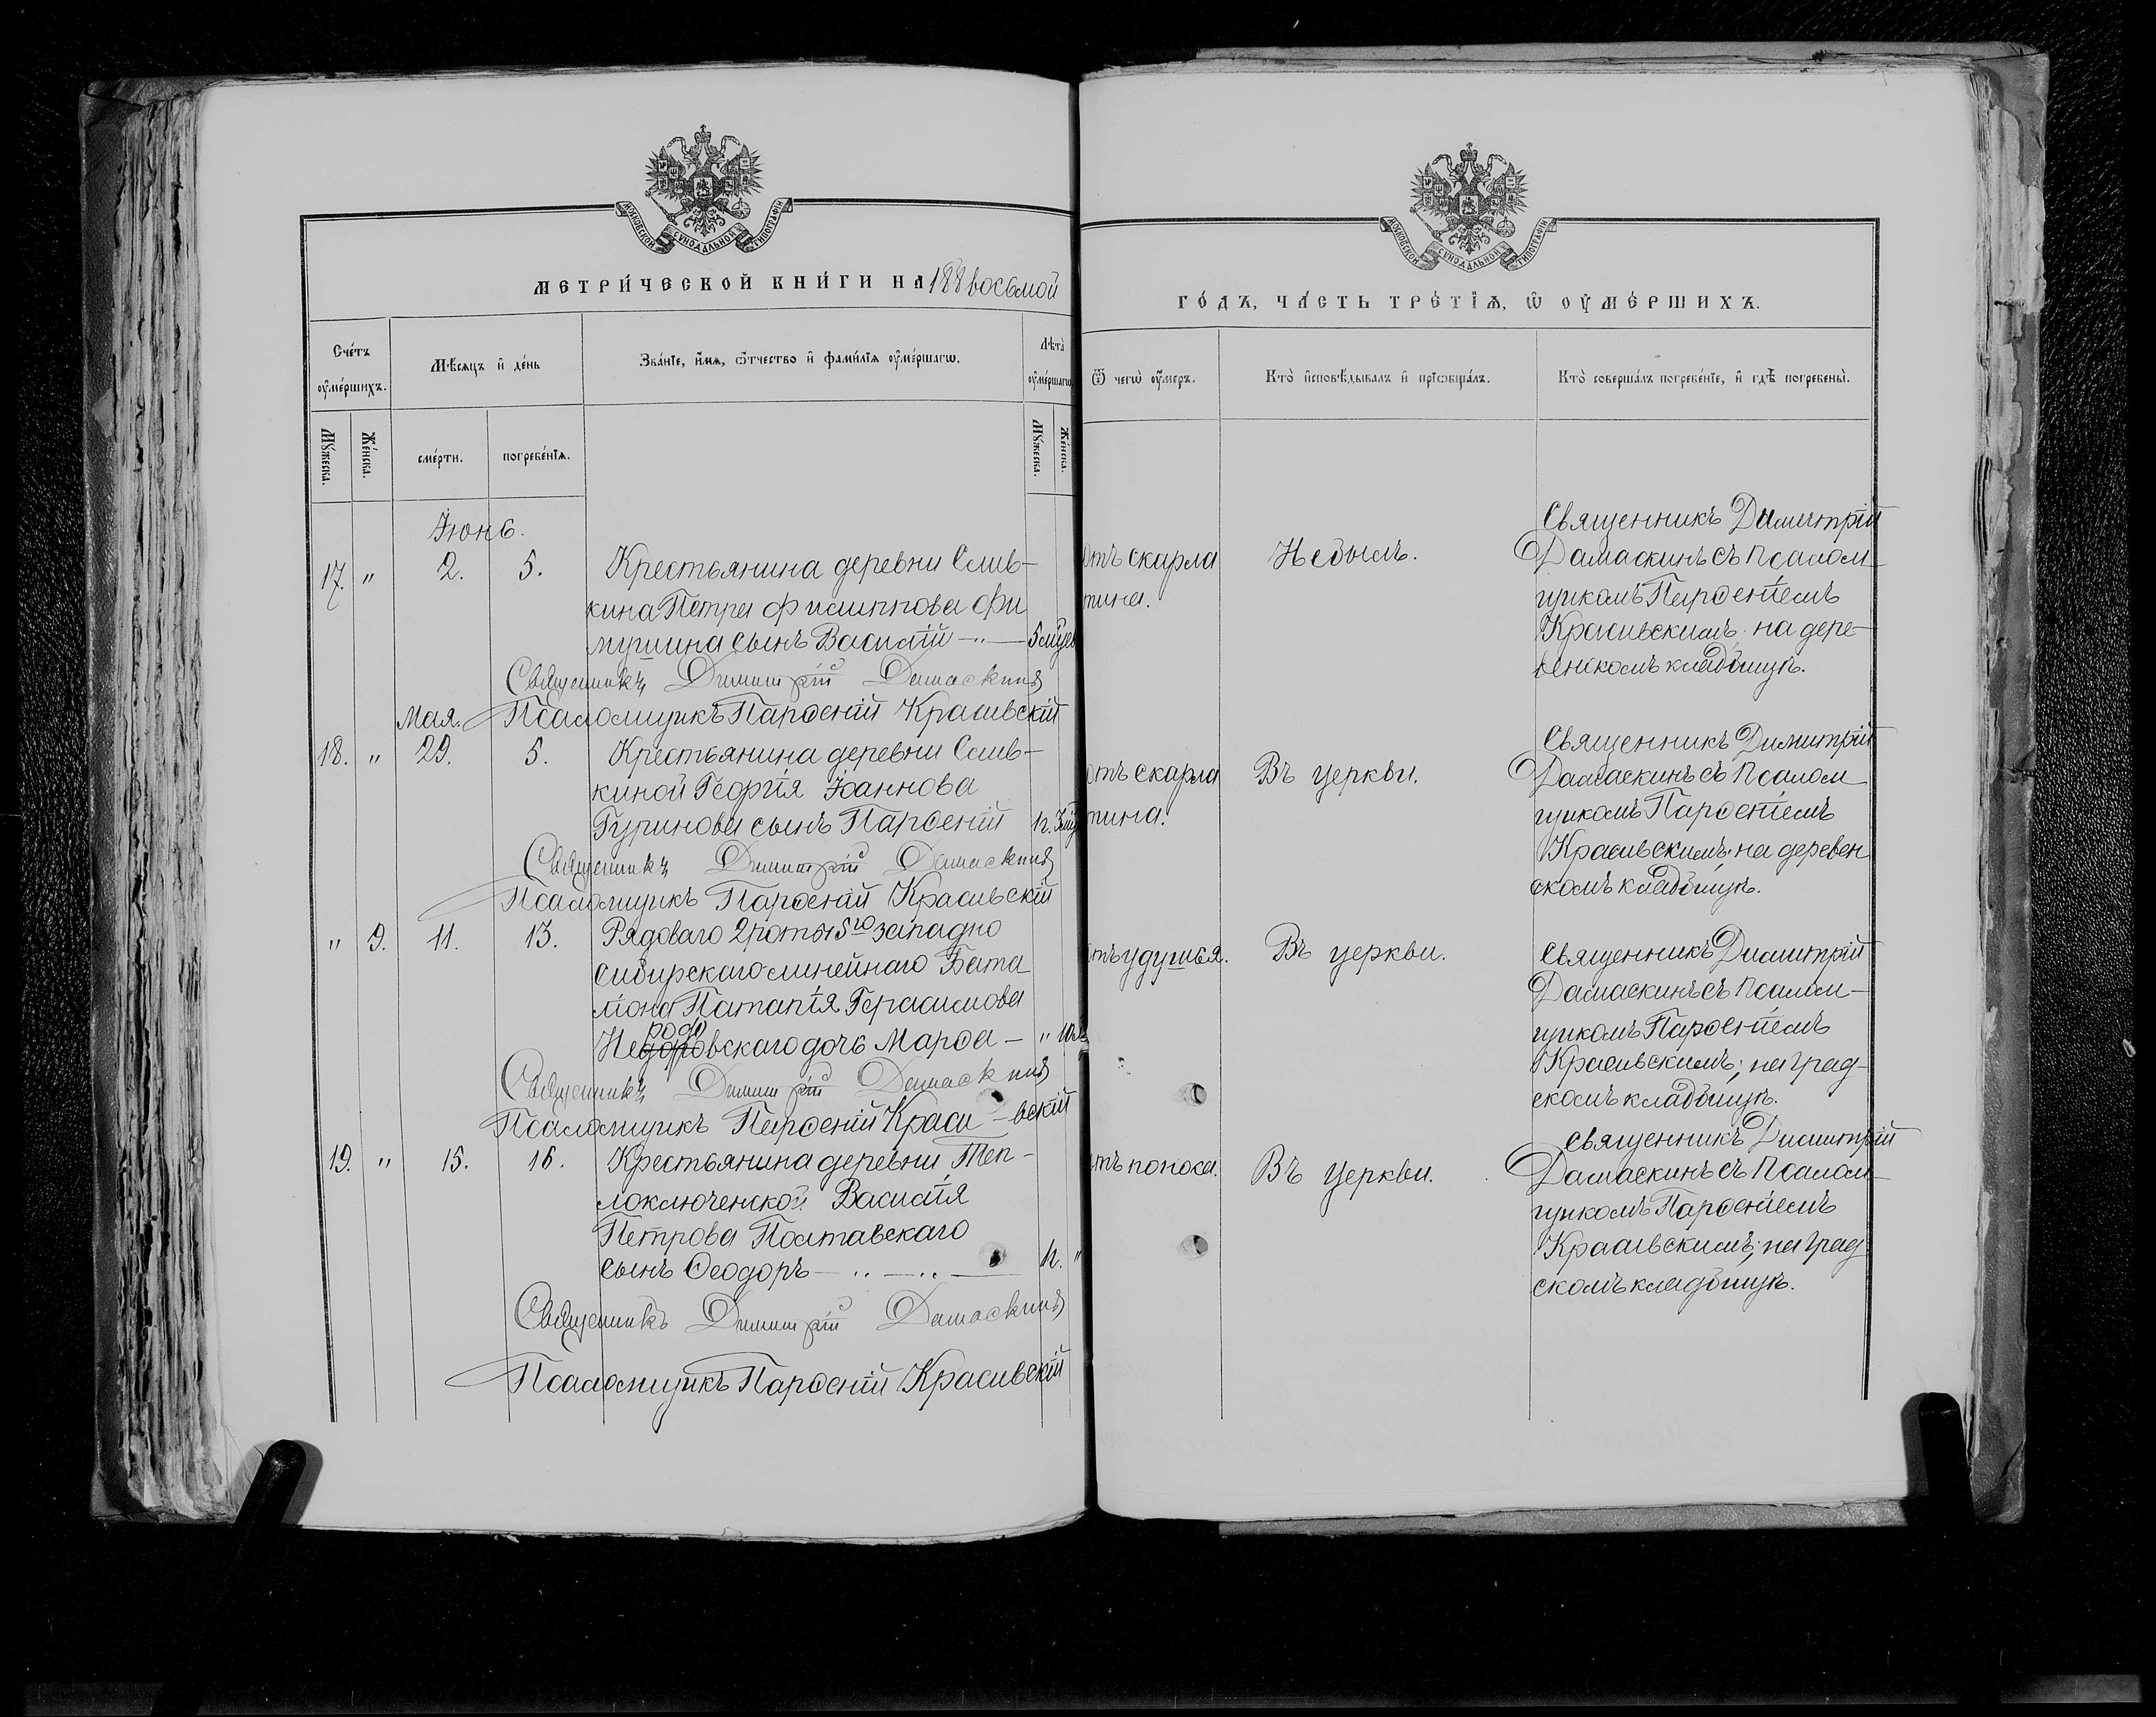 МОСКОВСКОЙ СѴНОДАЛЬНОЙ ТИПОГРАФІИ
МЕТРИ́ЧЕСКОЙ КНИ́ГИ НА 188 восьмой
Сче́тъ ᲂу҆ме́ршихъ.
Мѣ́сѧцъ и҆ де́нь
Зва́нїе, и҆́мѧ, ѻ҆́тчество и҆ фами́лїѧ ᲂу҆ме́ршагѡ.
Лѣта̀ ᲂу҆ме́ршагѡ
Мꙋ́жеска.
Же́нска.
сме́рти.
погребе́нїѧ.
Мꙋ́жеска.
Же́нска.
Іюнь.
17. " 2. 5. Крестьянина деревни Слив-
кина Петра Филиппова Фи
мушина сынъ Василій — 5 мѣсец
Священникъ Димитрій Дамаскинъ
Псаломщикъ Парѳеній Красивскій
Мая.
18. " 29. 5. Крестьянина деревни Слив-
киной Георгія Іоаннова
Гуринова сынъ Парѳеній
Священникъ Димитрій Дамаскинъ
Псаломщикъ Парѳеній Красивскій
" 9. 11. 13. Рядоваго 2 роты 5го западно
сибирскаго линейнаго Бата
ліона Патапія Герасимова
родо
Недоровскаго дочь Марѳа — "
Священникъ Димитрій Дамаскинъ
Псаломщикъ Парѳеній Краси-вскій
19. " 15. 16. Крестьянина деревни Теп-
лоключенской Василія
Петрова Полтавскаго
сынъ Ѳеодоръ — "
Священникъ Димитрій Дамаскинъ
Псаломщикъ Парѳеній Красивскій
МОСКОВСКОЙ СѴНОДАЛЬНОЙ ТИПОГРАФІИ
ГО́ДЪ, ЧА́СТЬ ТРЕ́ТЇѦ, Ѡ҆ ОУ҆МЕ́РШИХЪ.
Ѿ чегѡ̀ ᲂу҆́меръ.
Кто̀ и҆сповѣ́дывалъ и҆ прїѡбща́лъ.
Кто̀ соверша́лъ погребе́нїе, и҆ гдѣ̀ погребены̀.
отъ скарла
тина.
Небылъ.
Священникъ Димитрій
Дамаскинъ съ псалом
щикомъ Парѳеніемъ
Красивскимъ на дере-
венскомъ кладбищѣ.
отъ скарла
тина.
Въ церкви.
Священникъ Димитрій
Дамаскинъ съ псалом
щикомъ Парѳеніемъ
Красивскимъ; на деревен
скомъ кладбищѣ.
отъ удушья.
Въ церкви.
Священникъ Димитрій
Дамаскинъ съ псалом-
щикомъ Парѳеніемъ
Красивскимъ; на град-
скомъ кладбищѣ.
отъ поноса.
Въ церкви.
Священникъ Димитрій
Дамаскинъ съ псалом-
щикомъ Парѳеніемъ
Красивскимъ; на град
скомъ кладбищѣ.